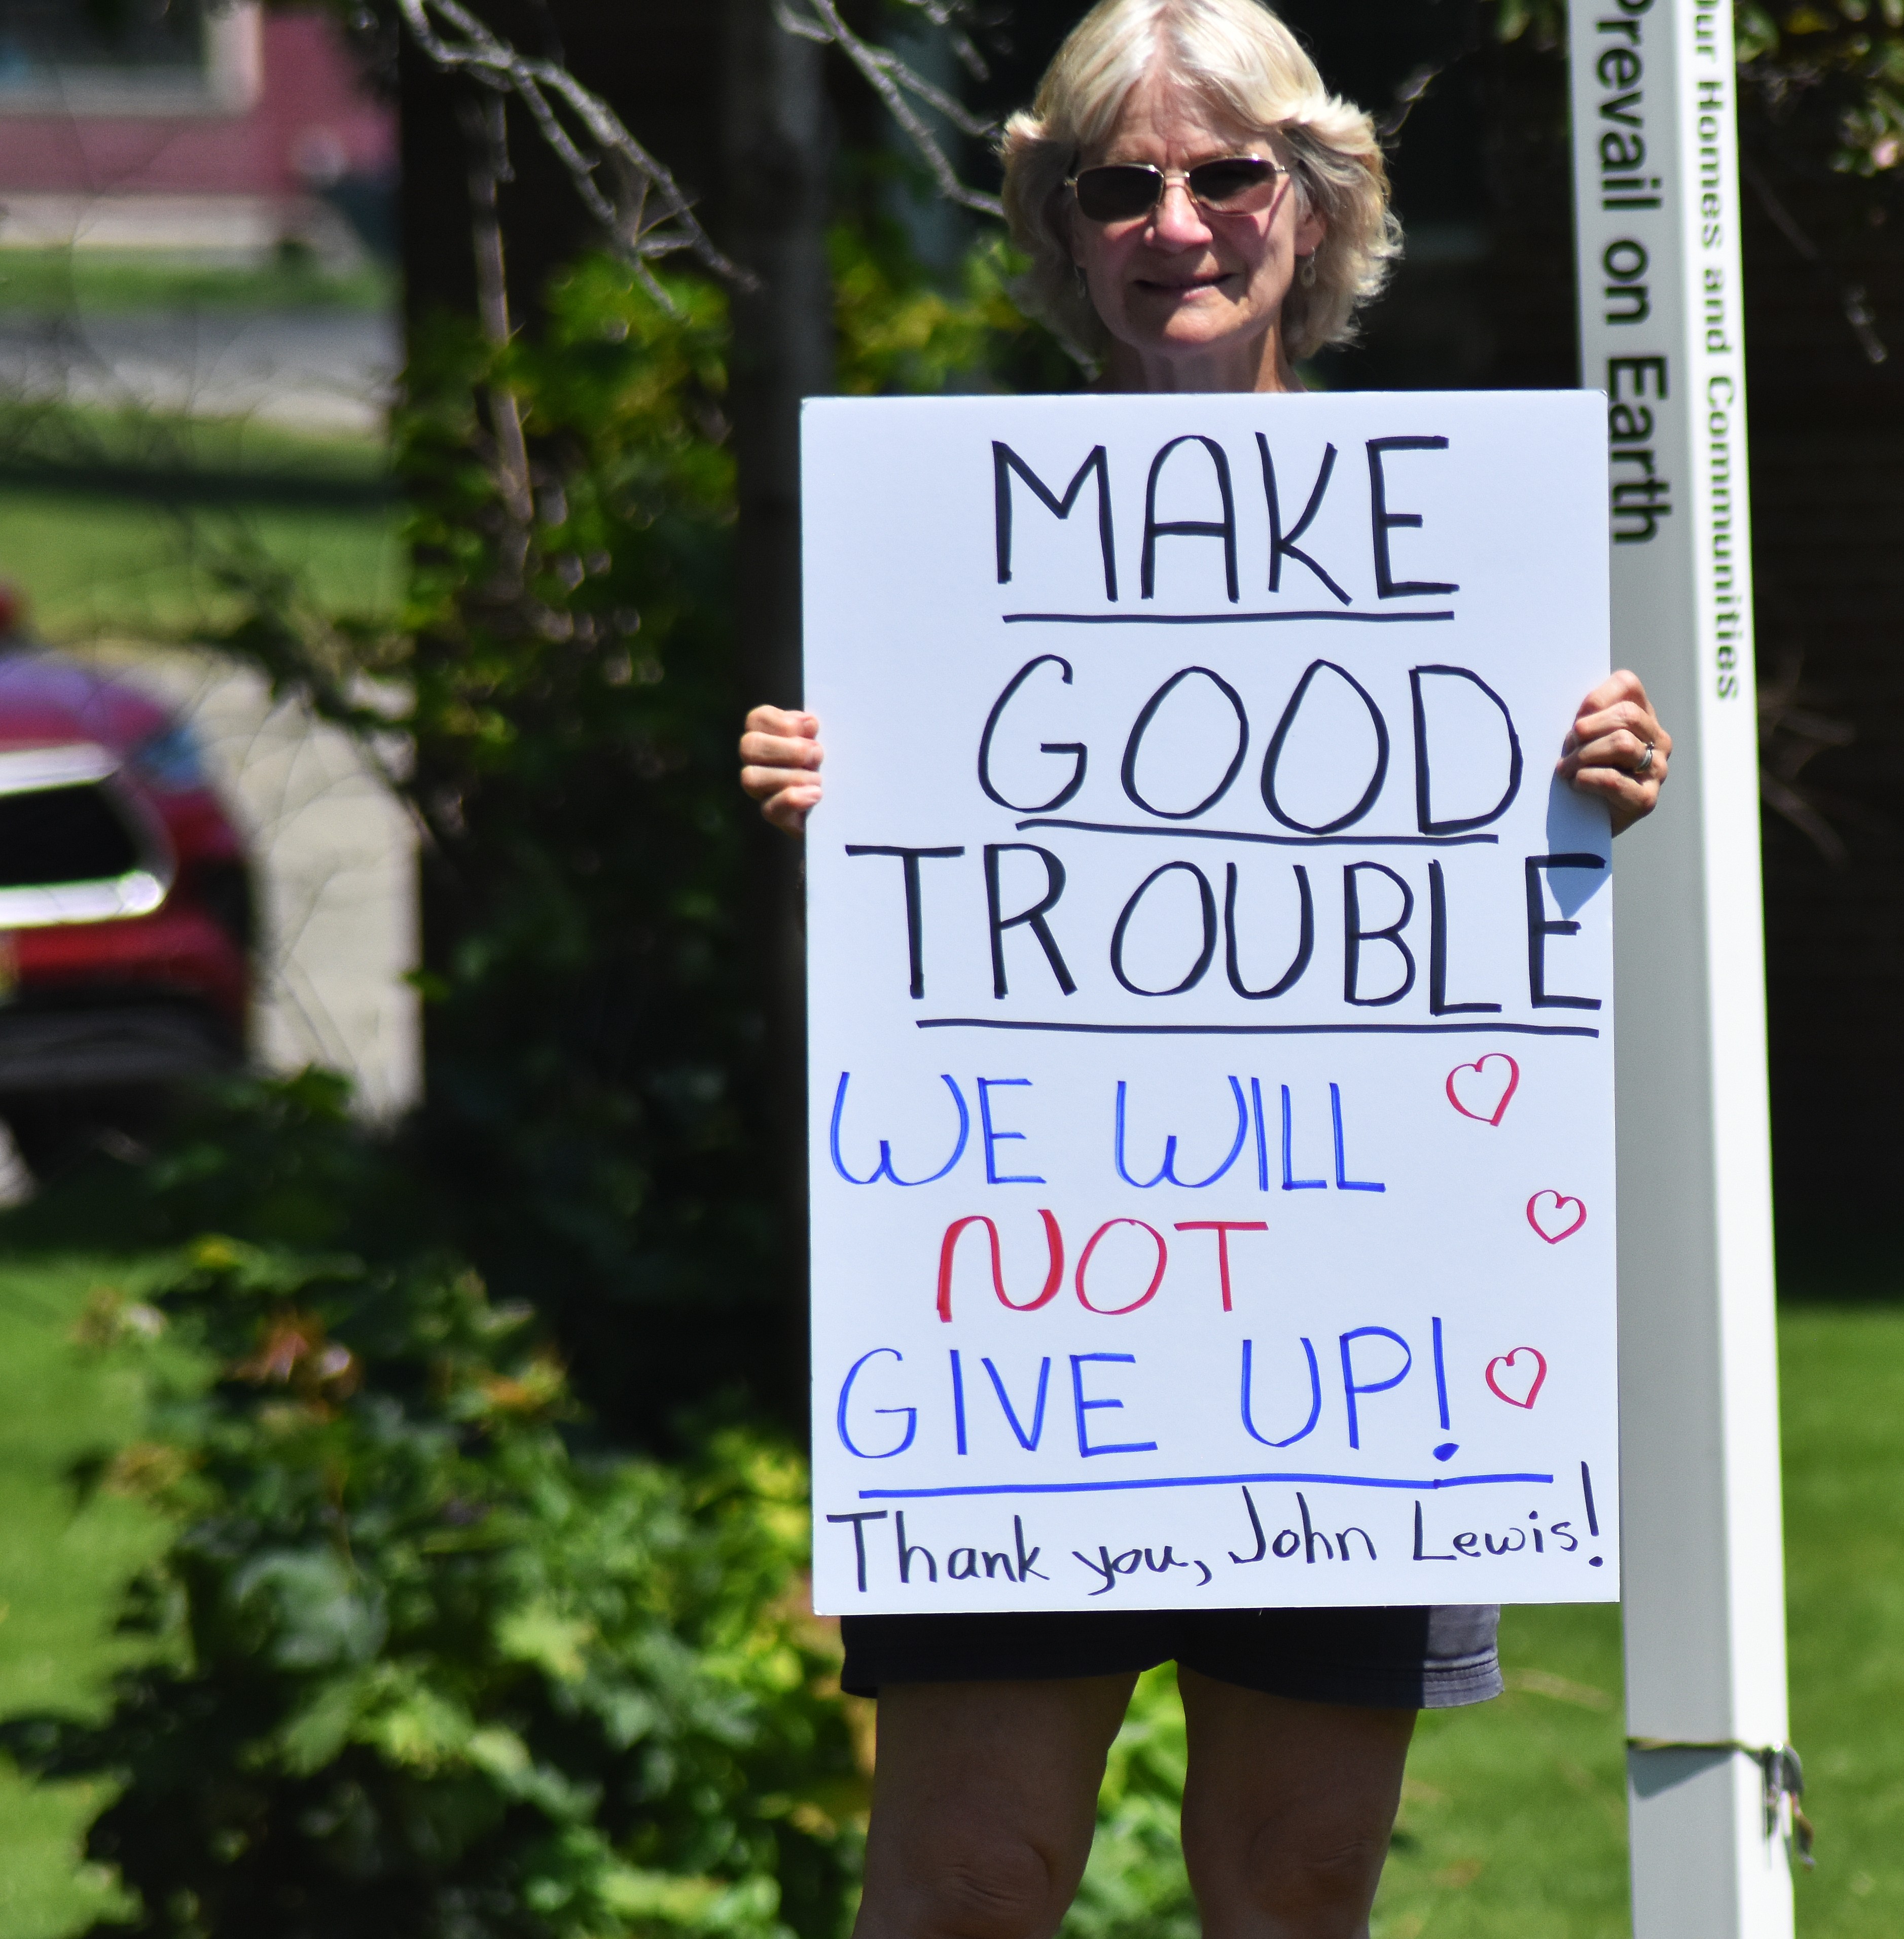 MAKE
GOOD
TROUBLE
WE WILL
NOT
GIVE UP!
Thank you, John Lewis!
Prevail on Earth
Our Homes and Communities